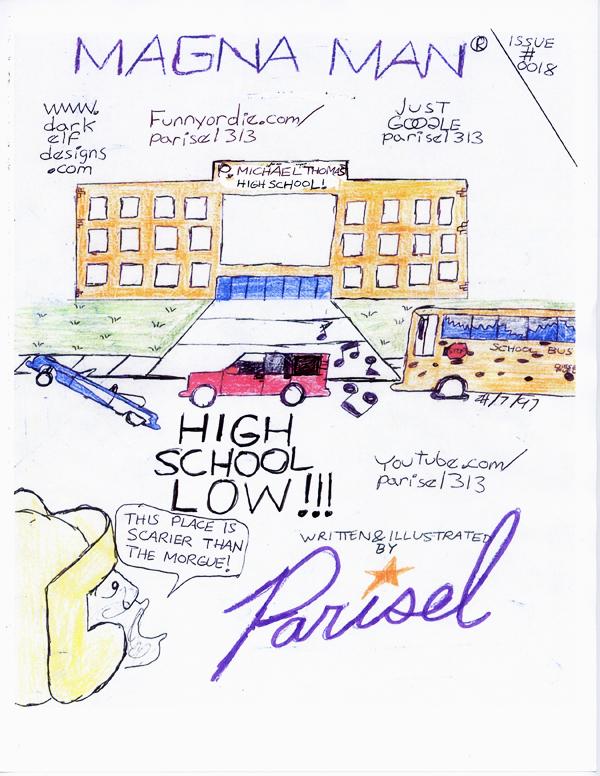 MAGNA MAN®
ISSUE
#
0018
www.
dark
elf
designs
.com
Funnyordie.com/
parisel313
JUST
GOOGLE
parisel313
P. MICHAEL THOMAS
HIGH SCHOOL!
STOP
SCHOOL BUS
4/7/97
HIGH
SCHOOL
LOW!!!
YouTube.com/
parisel313
THIS PLACE IS
SCARIER THAN
THE MORGUE!
WRITTEN & ILLUSTRATED
BY
Parisel